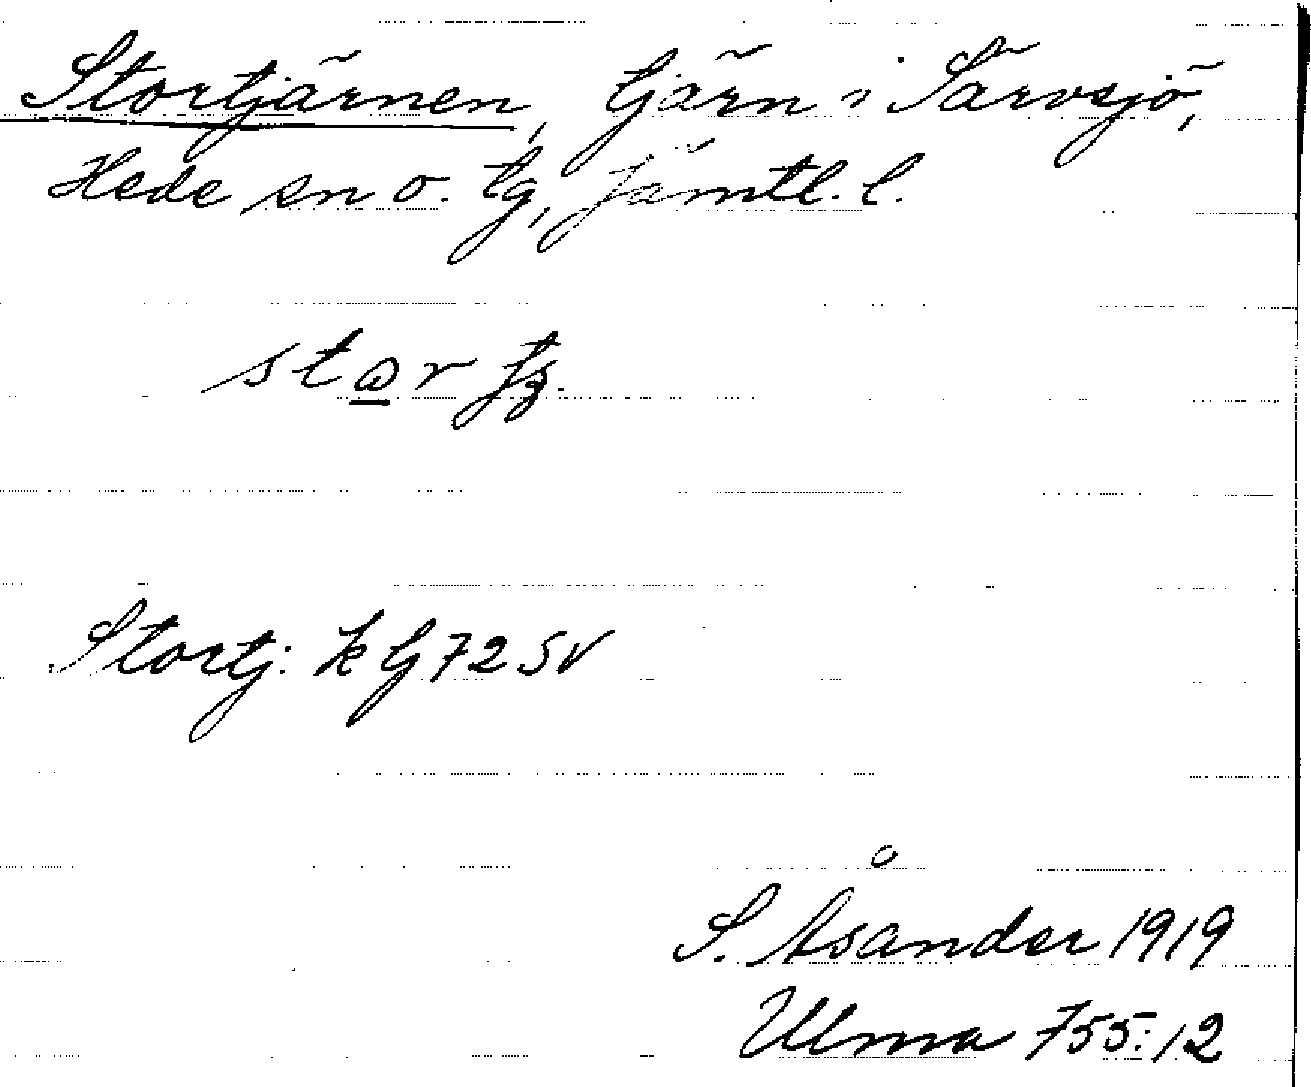 Stortjärnen, tjärn i Särvsjö,
Hede sn o. tg, Jämtl. l.
Stortj: k tj 72 SV
S. Åsander 1919
Ulma 755:12